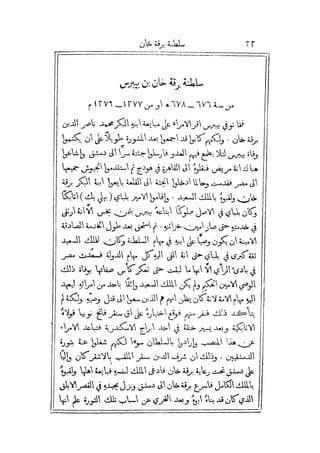 ٢٣ سلطنة برقة خان
سلطنة برقة خان بن بيبرس
من سنة ٦٧٦ – ٦٧٨ ھ او من ١٢٧٧ – ١٢٧٩ م
فلما توفي بيبرس اقر الامراء على مبايعة ابنه البكر محمد ناصر الدين
برقة خان. ولكنهم كانوا قد اجمعوا بعد المشورة طويلاً على ان يكتموا
وفاة بيبرس لئلا يطمع فيهم العدو فارسلوا جثته سرًّا الى دمشق واشاعوا
هناك انه مريض فنقلوه الى القاهرة في هودج ثم استقدموا الجيوش جميعها
الى مصر فقدمت وحالما ادخلوا الجثة الى القلعة بايعوا ابنه البكر برقة
خان ولقبوه بالملك السعيد. واقاموا الامير بلباي (بيلي بك) اتابكًا
وكان بلباي في الاصل مملوكًا ابتاعه بيبرس بثمن بخس الا انه ارتقى
في خدمته حتى صار امين خزائنه. ثم استحق بعد طول الخدمة الصادقة
الامينة ان يكون وصيًّا على ابنه في مهام السلطنة وكان الملك السعيد
ثقة كبرى في بلباي حتى انه القى اليه كل مهام الدولة فسعدت مصر
في بادئ الرأي الا انها ما لبثت حتى تعكر كأس صفائها بوفاة ذلك
الوصي الامين الحكيم ولم يكن الملك السعيد واثقًا باحد من امرائه ليعهد
اليه مهام الامة لانه كان يظن انهم هم الذين سعوا الى قتل وصيه ولكنه لم
يتأكد ذلك فنفر منهم فوقع اختياره على اق سنقر فاتح نوبيا فولاه
الاتابكية وبعد يسير خنقه في احد ابراج الاسكندرية فتباعد الامراء
عن هذا المنصب وارادوا بالسلطان سوءًا لكنهم شغلوا عنه بثورة
الدمشقيين. وذلك ان شرف الدين سنقر الملقب بالاشقر كان واليًا
على دمشق تحت رعاية برقة خان فادعى الملك لنفسه فبايعه اهلها ولقبوه
بالملك الكامل فاسرع برقة خان الى دمشق ونزل بجيشه في القصر الابلق
الذي كان قد بناه ابوه وبعد التحري عن اسباب تلك الثورة علم انها